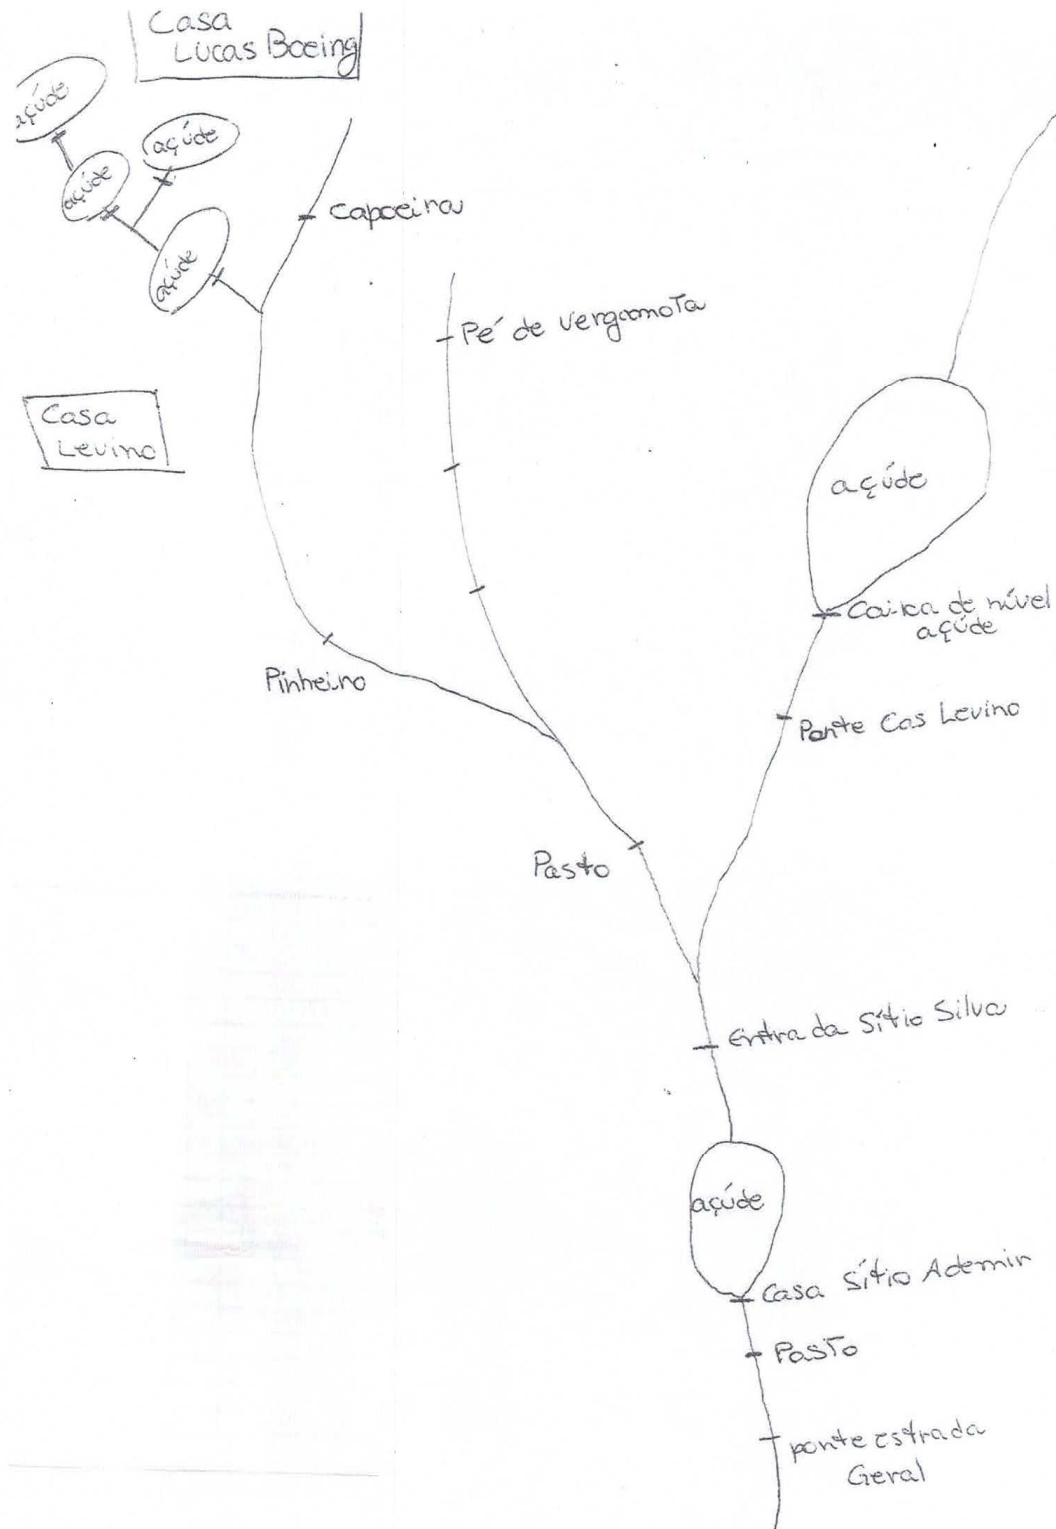 Casa
Lucas Boeing
açúde
açúde
açúde
açúde
Capoeira
Pé de vergamota
Casa
Levino
açúde
Caixa de nível
açúde
Pinheiro
Ponte Cas Levino
Pasto
Entrada Sítio Silva
açúde
Casa Sítio Ademir
Pasto
ponte estrada
Geral